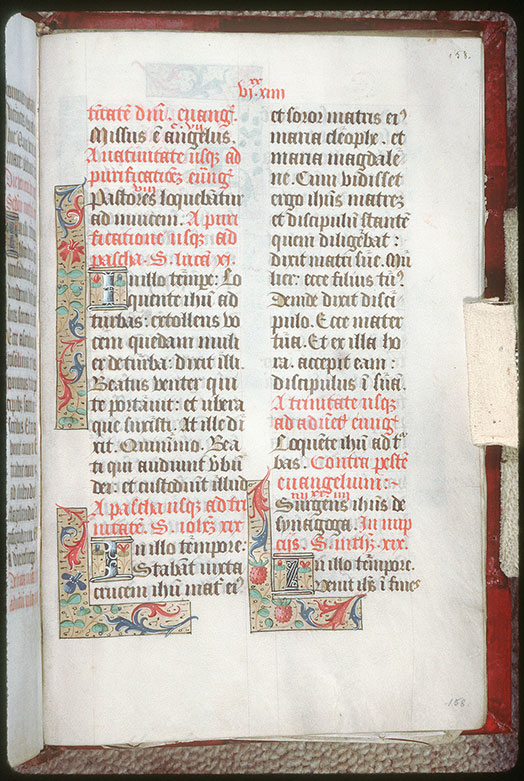 158.
xx
vj.xiiii
nitatē dnī. euangᷓ.
c vij
Missus ē angelus.
A natiuitate usqꝫ ad
purificatiōeꝫ euūgᷓ
viij
Pastores loquebātur
ad inuicem. A puri
ficatione usqꝫ ad
pascha. S. lucā xj.
In illo tēmpꝛe: Lo
quente ihū ad
turbas: extollens vo
cem quedam muli
er de turba: dixit illi.
Beatus venter qui
te portauit: et ubera
que suxisti. At ille di
xit. Quinimo. Bea
ti qui audiunt v̄bū
dei: et custodiūt illud
A pascha usqꝫ ad tri
nitatē. S. iohēꝫ xix
In illo tēmpore.
Stabāt iuxta
crucem ihū matᷓ eiꝰ
et soror matris eiꝰ
maria cleophe. et
maria magdale
ne. Cum vidisset
ergo ihūs matrēꝫ
et discipulū stantē
quem diligebat:
dixit matri sue. Mu
lier: ecce filius tuꝰ.
Deinde dixit disci
pulo. Ecce mater
tua. Et ex illa ho
ra. accepit eam
discipulus ī suā.
A trinitate usqꝫ
ad aduētū euūgᷓ
Loquēte ihū ad tᷓ
bas. Contra pestē
euangelium:
Surgens ihūs de
synagoga. In nup
cijs. S. mtħꝫ. xix.
In illo tēmpore.
Uenit ihꝫ ī fines
158